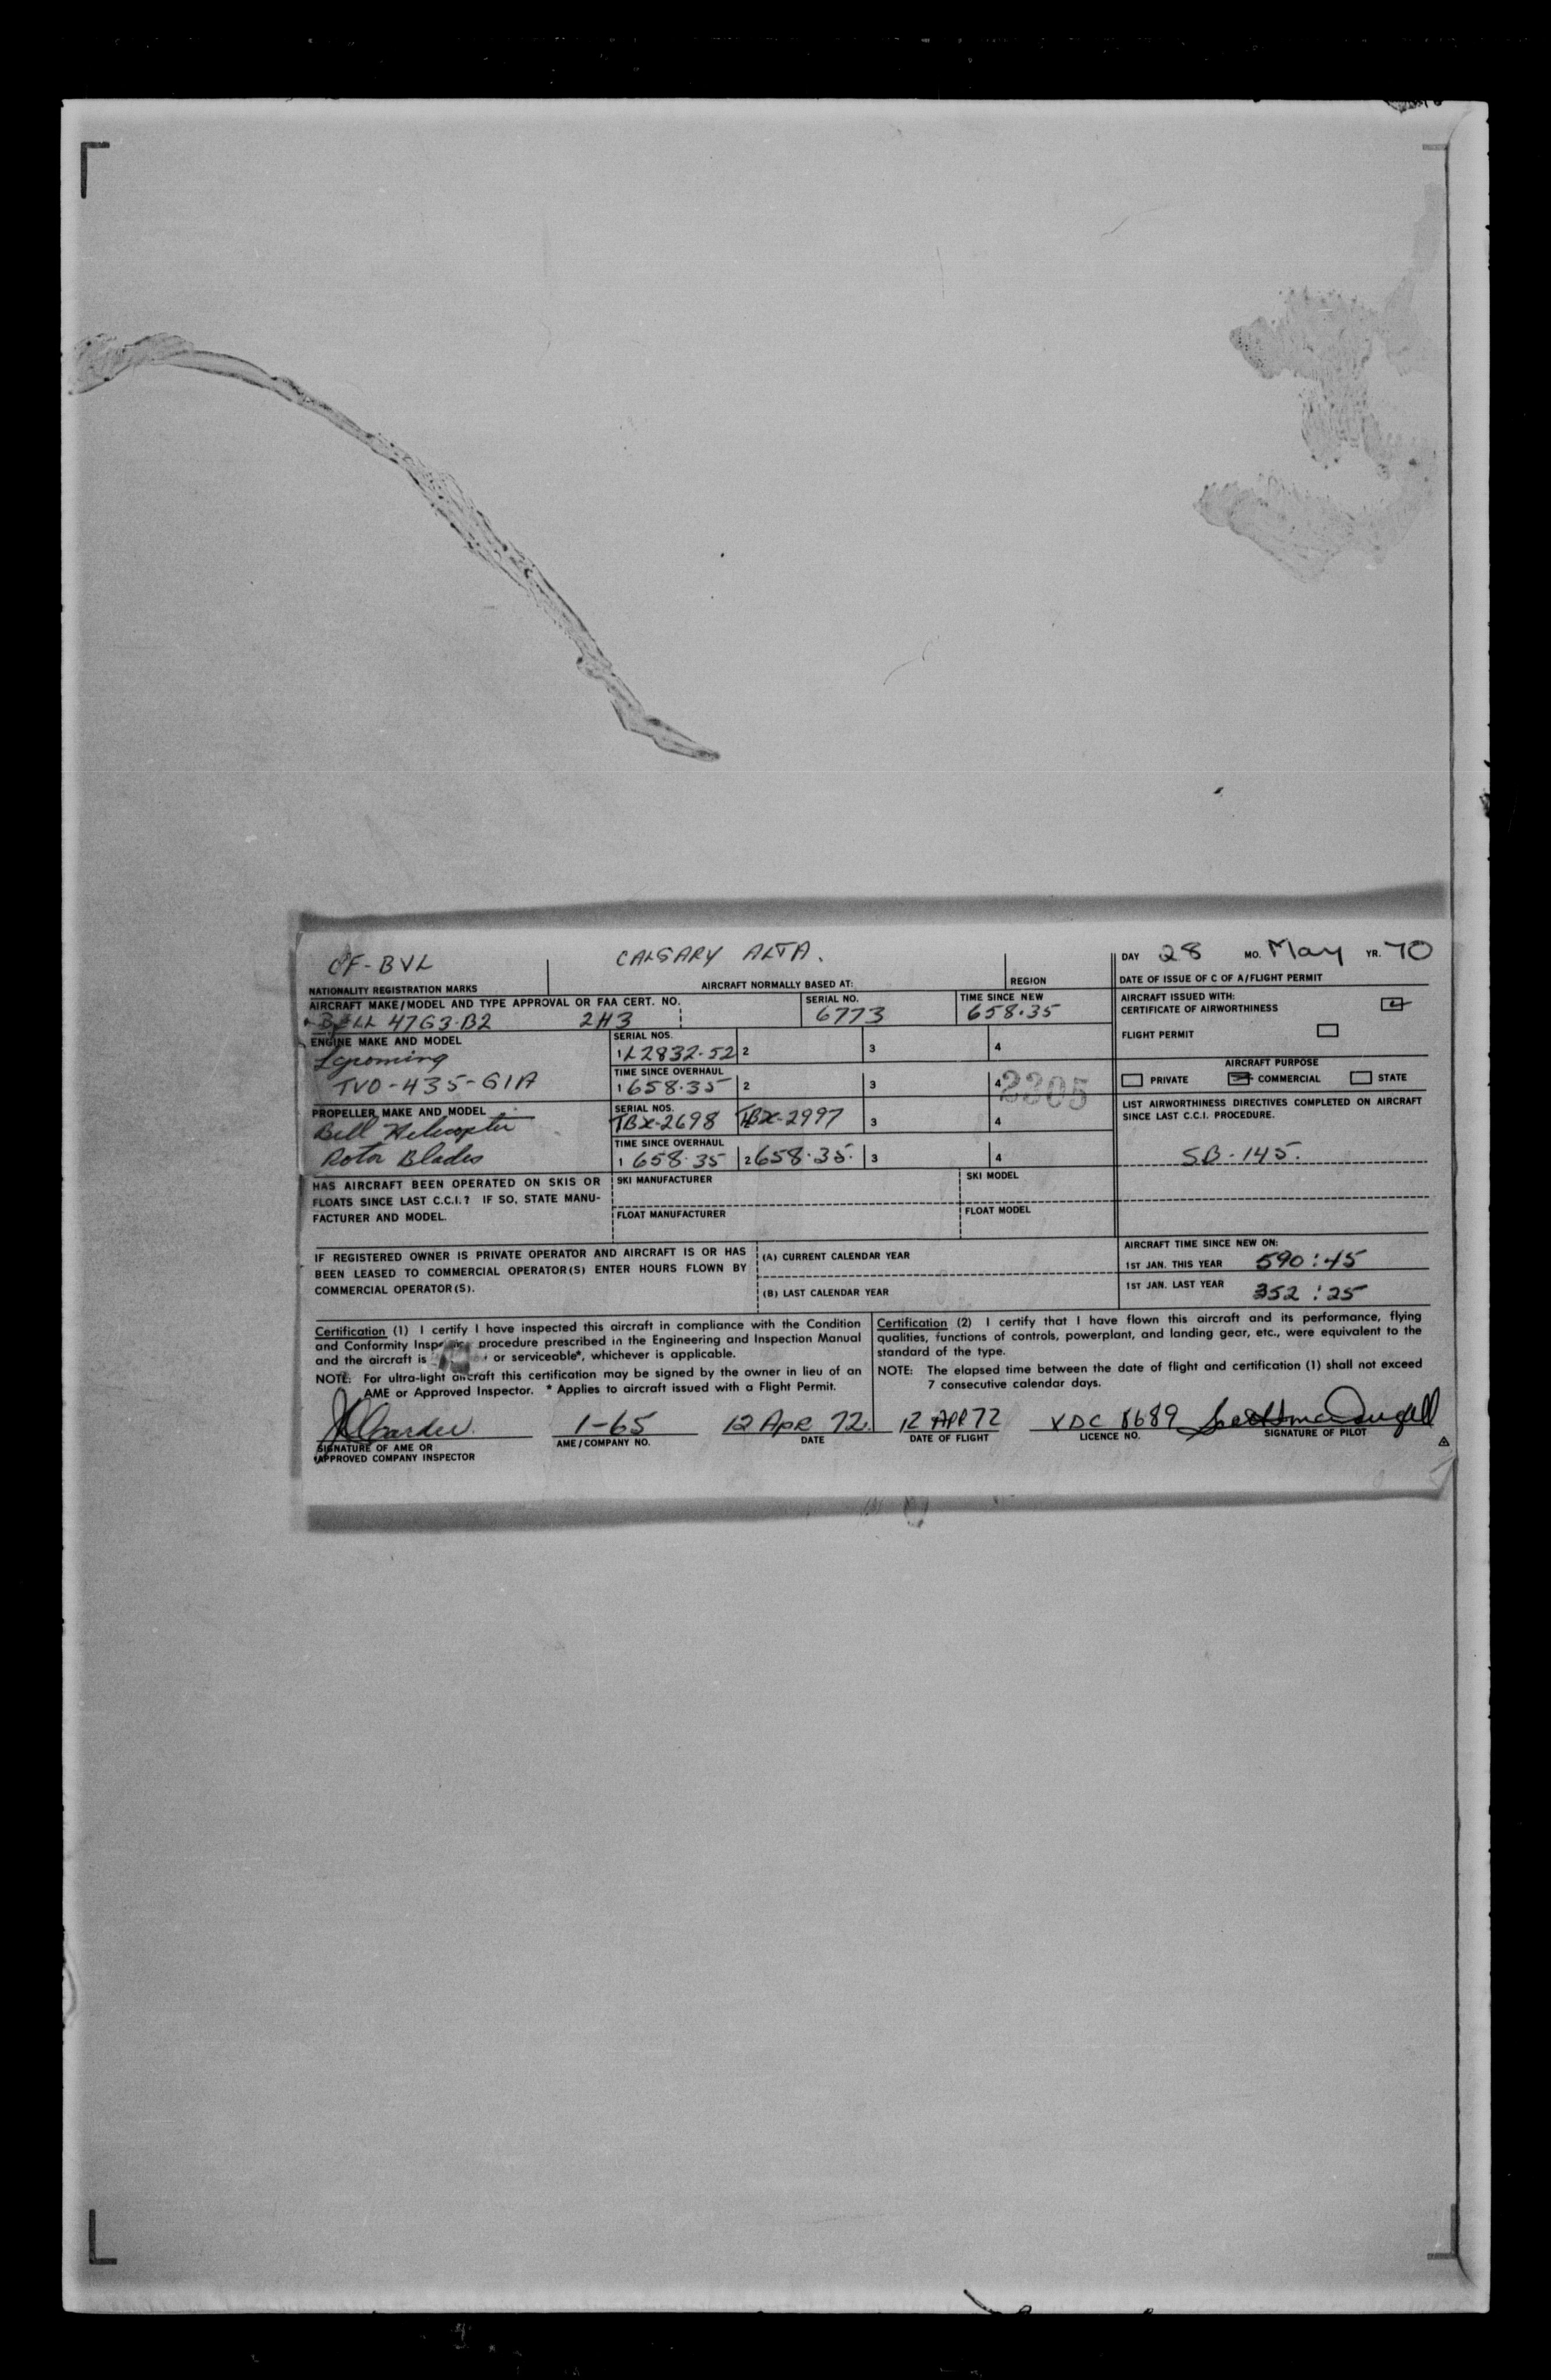 CF-BVL CALGARY ALTA. DAY 28 MO. May YR. 70
NATIONALITY REGISTRATION MARKS AIRCRAFT NORMALLY BASED AT: REGION DATE OF ISSUE OF C OF A/FLIGHT PERMIT
AIRCRAFT MAKE/MODEL AND TYPE APPROVAL OR FAA CERT. NO. SERIAL NO. TIME SINCE NEW
BELL 47G3-B2 2H3 6773 658.35
AIRCRAFT ISSUED WITH:
CERTIFICATE OF AIRWORTHINESS
FLIGHT PERMIT
ENGINE MAKE AND MODEL
Lycoming
TVO-435-G1A
SERIAL NOS.
1 L2832-52 2 3 4
TIME SINCE OVERHAUL
1 658.35 2 3 4
2305
AIRCRAFT PURPOSE
PRIVATE COMMERCIAL STATE
PROPELLER MAKE AND MODEL
Bell Helicopter
Rotor Blades
SERIAL NOS.
TBX-2698 TBX-2997 3 4
TIME SINCE OVERHAUL
1 658.35 2 658.35. 3 4
LIST AIRWORTHINESS DIRECTIVES COMPLETED ON AIRCRAFT
SINCE LAST C.C.I. PROCEDURE.
SB-145.
HAS AIRCRAFT BEEN OPERATED ON SKIS OR
FLOATS SINCE LAST C.C.I.? IF SO, STATE MANU-
FACTURER AND MODEL.
SKI MANUFACTURER SKI MODEL
FLOAT MANUFACTURER FLOAT MODEL
IF REGISTERED OWNER IS PRIVATE OPERATOR AND AIRCRAFT IS OR HAS
BEEN LEASED TO COMMERCIAL OPERATOR(S) ENTER HOURS FLOWN BY
COMMERCIAL OPERATOR(S).
(A) CURRENT CALENDAR YEAR
(B) LAST CALENDAR YEAR
AIRCRAFT TIME SINCE NEW ON:
1ST JAN. THIS YEAR 590:45
1ST JAN. LAST YEAR 352:25
Certification (1) I certify I have inspected this aircraft in compliance with the Condition
and Conformity procedure prescribed in the Engineering and Inspection Manual
and the aircraft is or serviceable*, whichever is applicable.
NOTE: For ultra-light aircraft this certification may be signed by the owner in lieu of an
AME or Approved Inspector. * Applies to aircraft issued with a Flight Permit.
Certification (2) I certify that I have flown this aircraft and its performance, flying
qualities, functions of controls, powerplant, and landing gear, etc., were equivalent to the
standard of the type.
NOTE: The elapsed time between the date of flight and certification (1) shall not exceed
7 consecutive calendar days.
1-65 12 APR 72. 12 APR 72 XDC 8689
SIGNATURE OF AME OR
APPROVED COMPANY INSPECTOR
AME/COMPANY NO. DATE DATE OF FLIGHT LICENCE NO. SIGNATURE OF PILOT